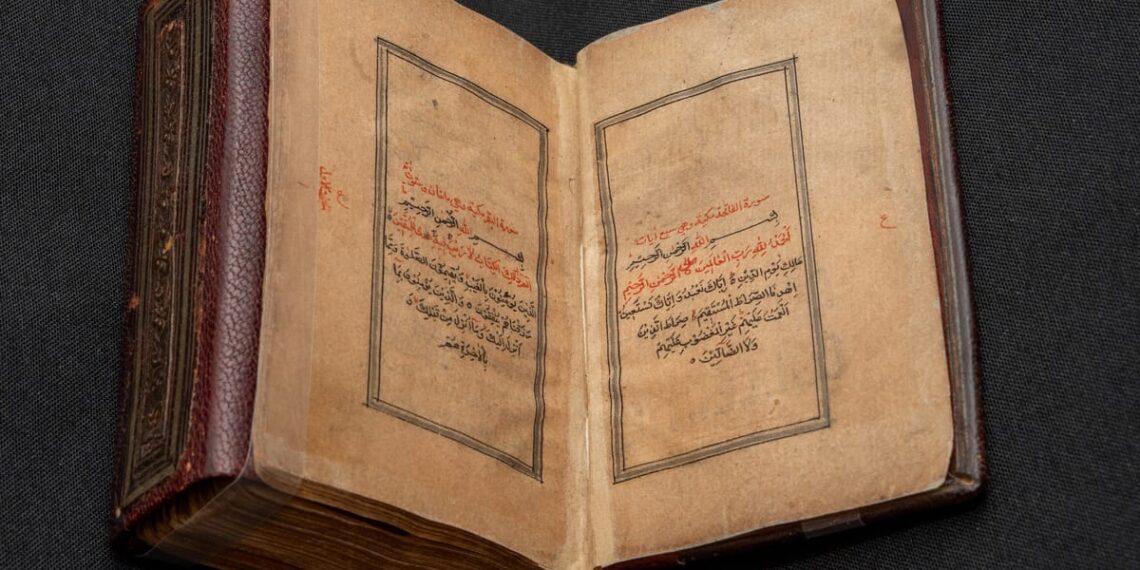 سورة الفاتحة مكية وهي سبع ايات
بِسْمِ اللهِ الرَّحْمٰنِ الرَّحِيْمِ
اَلْحَمْدُ لِلّٰهِ رَبِّ الْعَالَمِيْنَ الرَّحْمٰنِ الرَّحِيْمِ
مَالِكِ يَوْمِ الدِّيْنِ اِيَّاكَ نَعْبُدُ وَاِيَّاكَ نَسْتَعِيْنُ
اِهْدِنَا الصِّرَاطَ الْمُسْتَقِيْمَ صِرَاطَ الَّذِيْنَ
اَنْعَمْتَ عَلَيْهِمْ غَيْرِ الْمَغْضُوْبِ عَلَيْهِمْ
وَلَا الضَّالِّيْنَ
ع
سورة البقرة مكية وهي مائتان و
بِسْمِ اللهِ الرَّحْمٰنِ الرَّحِيْمِ
الم ذلك الكتاب لا ريب فيه هدى للمتقين
الَّذِيْنَ يُؤْمِنُوْنَ بِالْغَيْبِ وَيُقِيْمُوْنَ الصَّلٰوةَ وَمِمَّا
رَزَقْنَاهُمْ يُنْفِقُوْنَ وَالَّذِيْنَ يُؤْمِنُوْنَ بِمَا
اُنْزِلَ اِلَيْكَ وَمَا اُنْزِلَ مِنْ قَبْلِكَ وَ
بِالْاٰخِرَةِ هُمْ